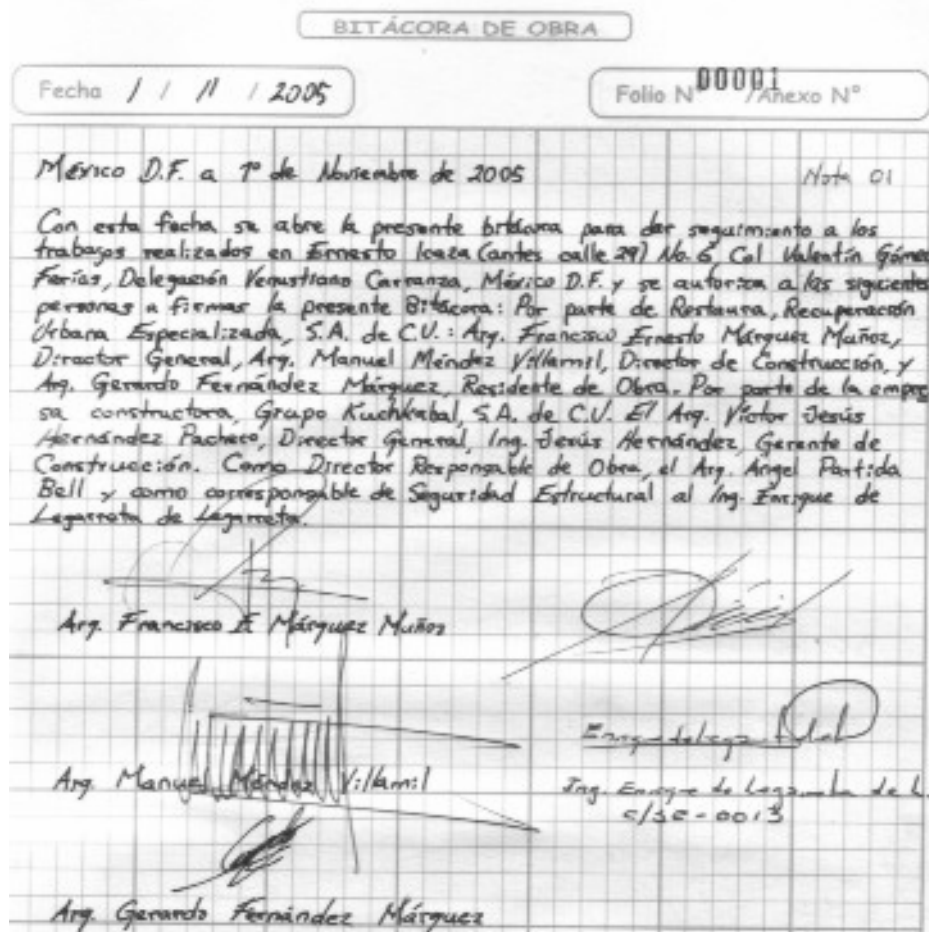 BITÁCORA DE OBRA
Fecha 1 / 11 / 2005
Folio N° 00001 / Anexo N°
México D.F. a 1° de Noviembre de 2005 Nota 01
Con esta fecha se abre la presente bitácora para dar seguimiento a los
trabajos realizados en Ernesto Icaza (antes calle 29) No. 6, Col Valentín Gómez
Farías, Delegación Venustiano Carranza, México D.F. y se autoriza a las siguientes
personas a firmar la presente Bitácora: Por parte de Restaura, Recuperación
Urbana Especializada, S.A. de C.V.: Arq. Francisco Ernesto Márquez Muñoz,
Director General, Arq. Manuel Méndez Villamil, Director de Construcción, y
Arq. Gerardo Fernández Márquez, Residente de Obra. Por parte de la empre
sa constructora, Grupo Kuchkabal, S.A. de C.V. El Arq. Víctor Jesús
Hernández Pacheco, Director General, Ing. Jesús Hernández, Gerente de
Construcción. Como Director Responsable de Obra, el Arq. Angel Partida
Bell y como corresponsable de Seguridad Estructural al Ing. Enrique de
Legarreta de Legarreta.
Arq. Francisco E Márquez Muñoz
Arq. Manuel Méndez Villamil
Ing. Enrique de de L.
C/SE-0013
Arq. Gerardo Fernández Márquez